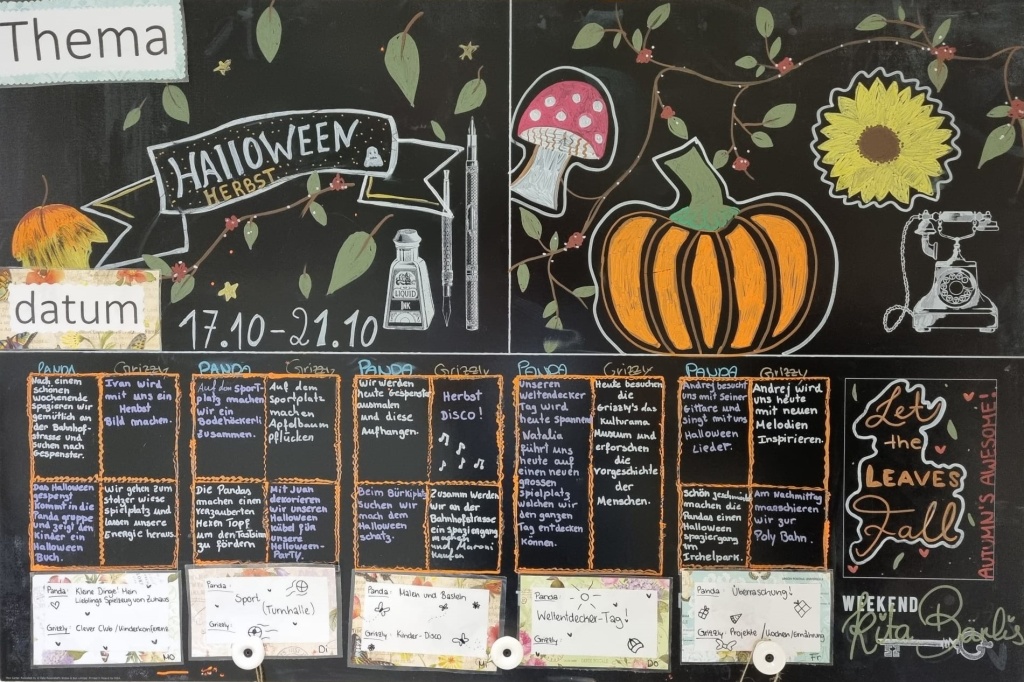 Thema
HALLOWEEN
HERBST
LIQUID
INK
datum
17.10-21.10
PANDA
Grizzly
Nach einem
schönen
wochenende
Spazieren wir
gemütlich an
der Bahnhof-
strasse und
suchen nach
Gespenster.
Ivan wird
mit uns ein
Herbst
Bild machen.
Das Halloween
gespenst
kommt in die
Panda gruppe
und zeigt den
Kinder ein
Halloween
Buch.
wir gehen zum
stolzer wiese
spielplatz und
lassen unsere
Energie heraus.
PANDA
Grizzly
Auf dem sport-
platz machen
wir ein
Bodehäckerli
zusammen.
Auf dem
sportplatz
machen
Apfelbaum
pflücken
Die Pandas
machen einen
verzauberten
Hexen Topf
um den Tastsinn
zu fördern
Mit Juan
dekorieren
wir unseren
Halloween
kübel für
unsere
Halloween-
Party.
PANDA
Grizzly
Wir werden
heute Gespenster
ausmalen
und diese
Aufhangen.
Herbst
Disco!
Beim Bürkiplatz
Suchen wir
nach dem
Halloween
schatz.
Zusamm werden
wir an der
Bahnhofstrasse
ein spaziergang
machen
und Maroni
Kaufen
PANDA
Grizzly
Unseren
weltendecker
Tag wird
heute spannend
Natalia
führt uns
heute auf
einen neuen
grossen
spielplatz
welchen wir
den ganzen
Tag entdecken
können.
Heute besuchen
die
Grizzly's das
Kulturama
Museum und
erforschen
die
vorgeschichte
der
Menschen.
PANDA
Grizzly
Andrej besucht
uns mit seiner
Gittare und
singt mit uns
Halloween
Lieder.
Andrej wird
uns heute
mit neuen
Melodien
Inspirieren.
Schön geschminkt
machen die
Pandas einen
Halloween
spaziergang
im
Irchelpark.
Am Nachmittag
marschieren
wir zur
Poly Bahn.
Let
the
LEAVES
Fall
AUTUMN'S AWESOME!
Panda: Kleine Dinge! Mein
Lieblings Spielzeug von Zuhaus
Grizzly: Clever Club / Kinderkonferenz
MO
Panda:
Sport
(Turnhalle)
Grizzly:
Di
Panda: Malen und Basteln
Grizzly: Kinder-Disco
Mi
Panda:
Weltentdecher-Tag!
Grizzly:
Do
Panda: Überraschung!
Grizzly: Projekte / Kochen/Ernährung
Fr
WEEKEND
Rita Barlis